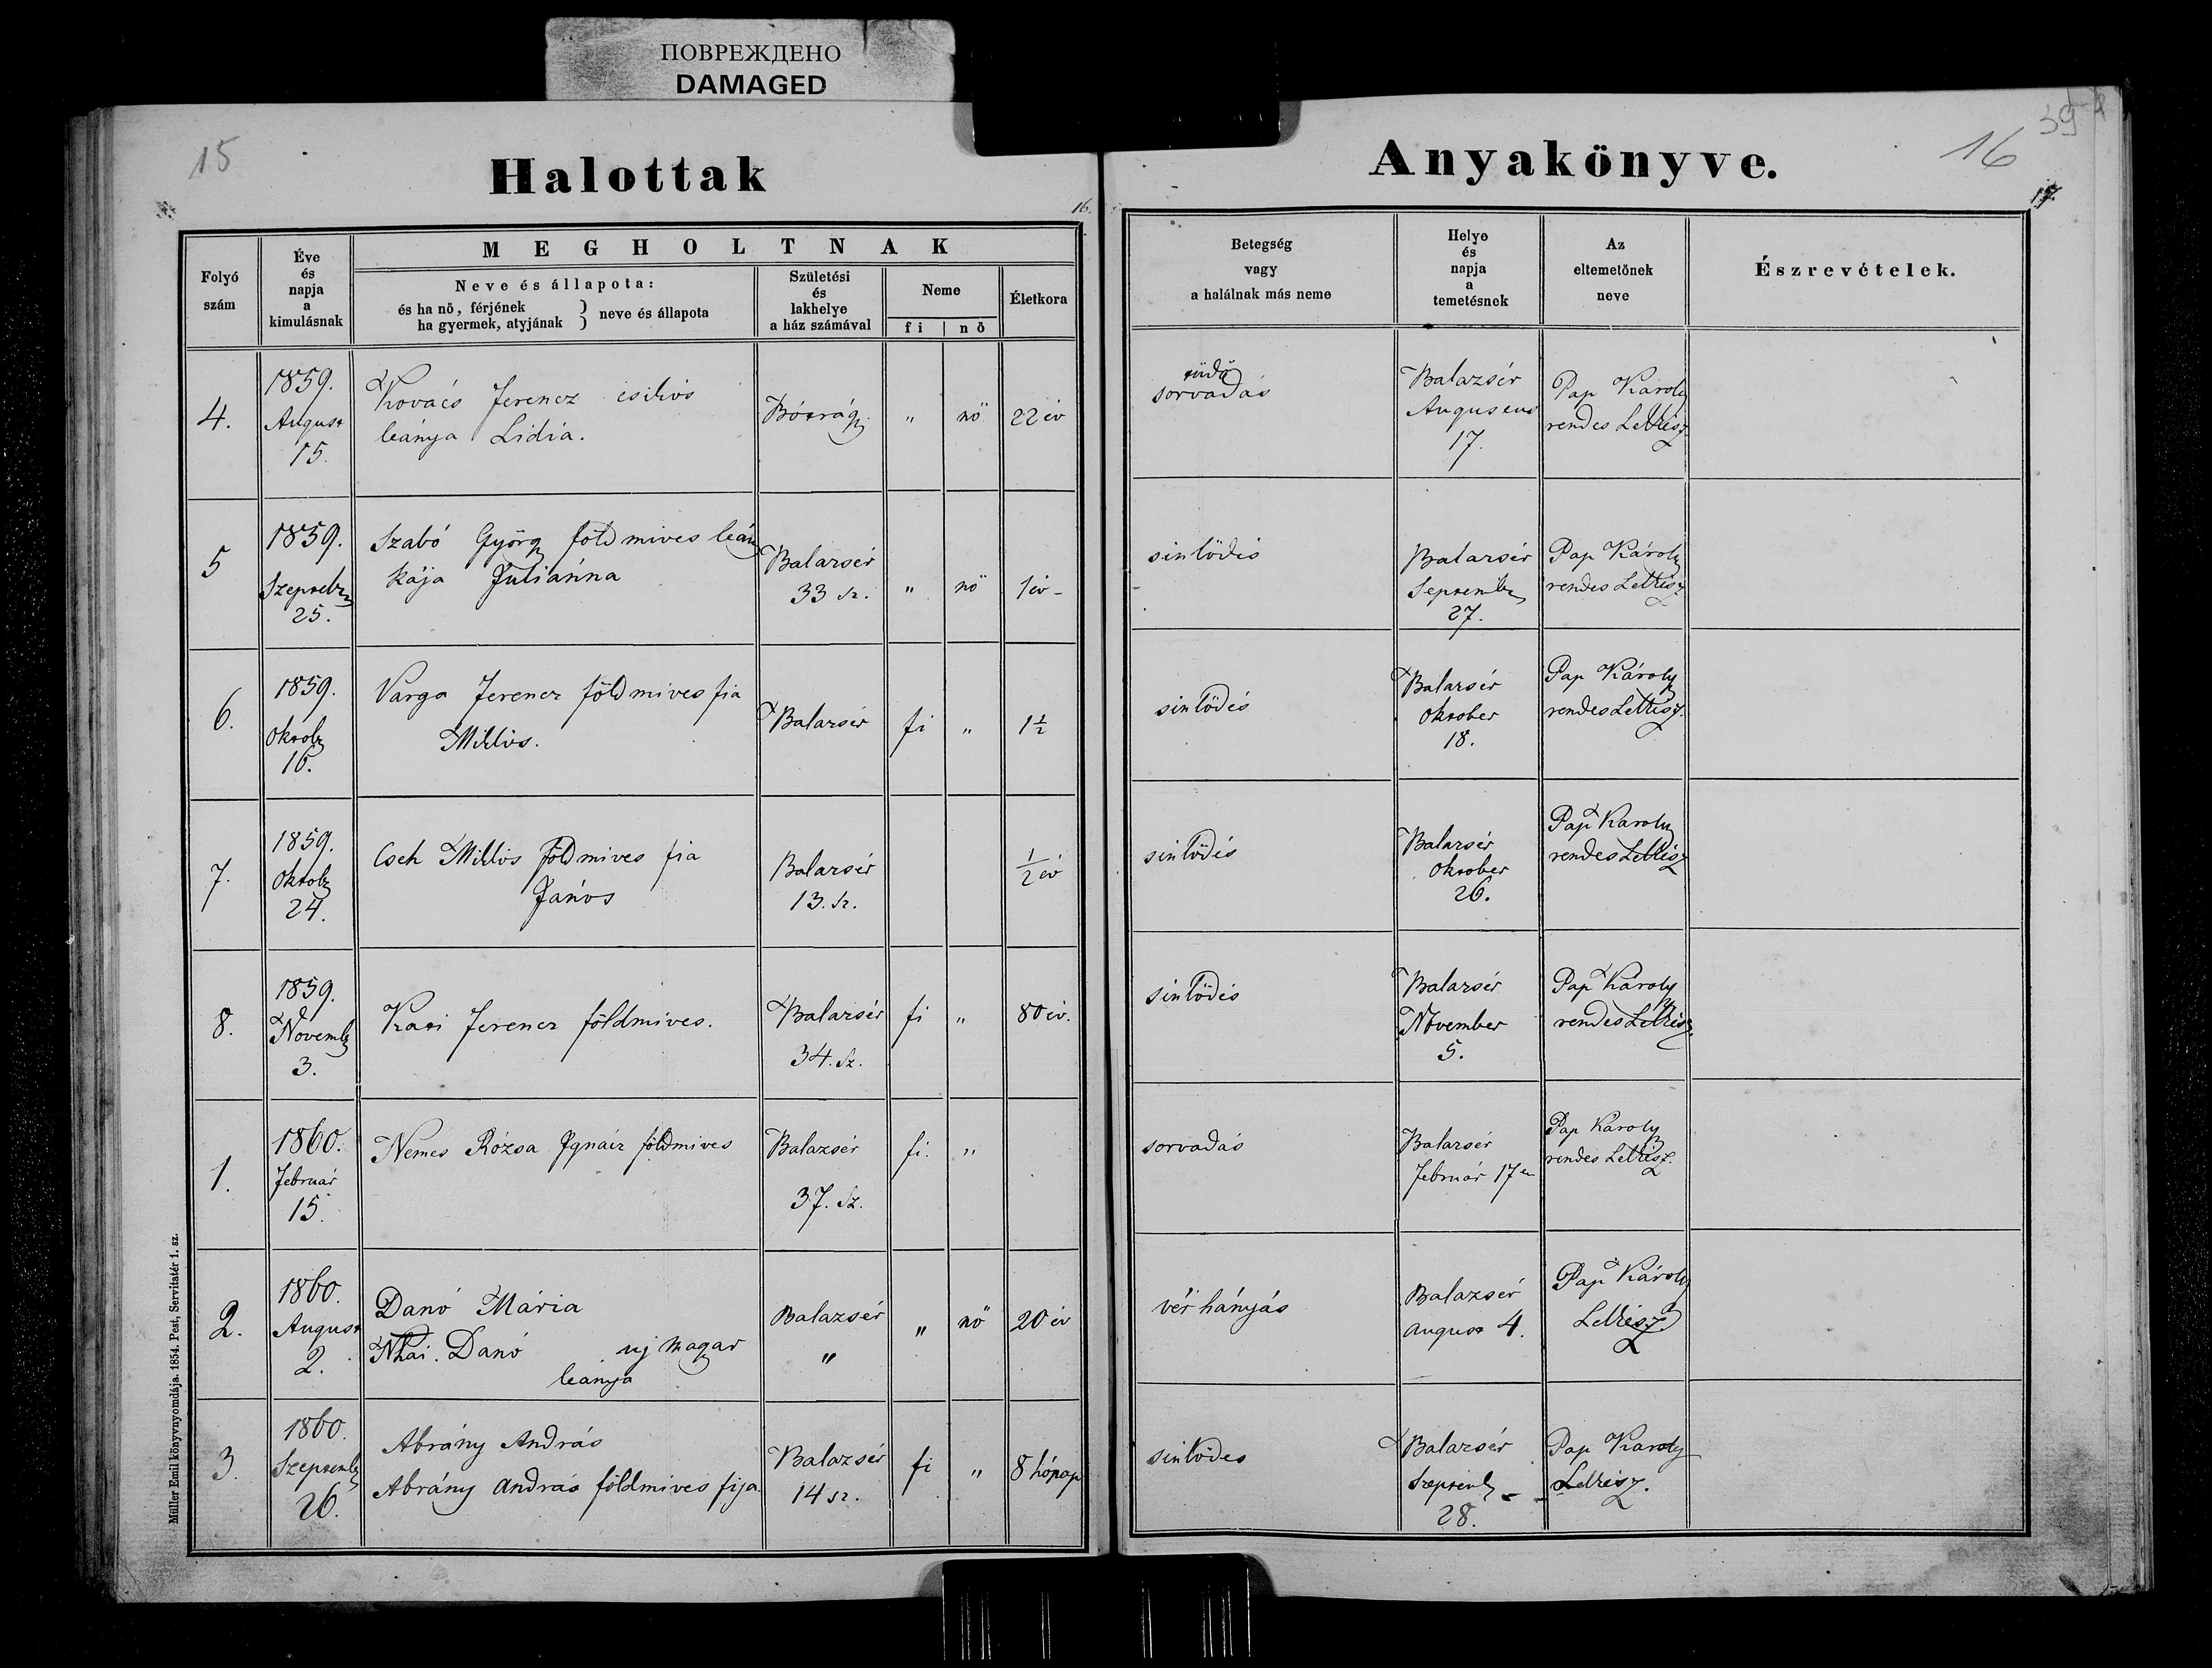 ПОВРЕЖДЕНО
DAMAGED
15
Halottak
16.
Folyó
szám
Éve
és
napja
a
kimulásnak
MEGHOLTNAK
Neve és állapota:
és ha nö, férjének
ha gyermek, atyjának } neve és állapota
Születési
és
lakhelye
a ház számával
Neme
fi | nö
Életkora
4.
1859.
August
15.
Kovács Ferencz csikós
leánya Lidia.
" nö 22 év
5
1859.
Szeptebr
25.
Szabó György földmives leány
kája Juliánna
Balazsér
33 sz.
" nö 1 év -
6.
1859.
Oktob
16.
Varga Ferencz földmives fia
Miklós.
Balazsér
fi " 1½
7.
1859.
Oktob
24.
Cseh Miklós földmives fia
János
Balazsér
13. sz.
½ év
8.
1859.
Novemb
3.
Ferencz földmives.
Balazsér
34. sz.
fi " 80 év.
1.
1860.
Februar
15.
Nemes Rózsa Ignácz földmives
Balazsér
37. sz.
fi. "
2.
1860.
August
2.
Danó Mária
Danó uj magyar
leánya
Balazsér
"
" nö 20 év
3.
1860.
Szeptemb
26.
Abrány András
Abrány András földmives fija.
Balazsér
14 sz.
fi " 8 hónap
Müller Emil könyvnyomdája. 1854. Pest, Servitatér 1. sz.
39
16
Anyakönyve.
17.
Betegség
vagy
a halálnak más neme
Helye
és
napja
a
temetésnek
Az
eltemetönek
neve
Észrevételek.
tüdő
sorvadás
Balazsér
Augustus
17.
Pap Károly
rendes Lelkész
sinlödés
Balazsér
September
27.
Pap Károly
rendes Lelkész
sinlödés
Balazsér
Oktober
18.
Pap Károly
rendes Lelkész.
sinlödés
Balazsér
Oktober
26.
Pap Károly
rendes Lelkész
sinlödés
Balazsér
November
5.
Pap Károly
rendes Lelkész.
sorvadás
Balazsér
Február 17én
Pap Károly
rendes Lelkész.
vér hányás
Balazsér
August 4.
Pap Károly
Lelkész
sinlödes
Balazsér
Szeptemb
28.
Pap Karoly
Lelkész.